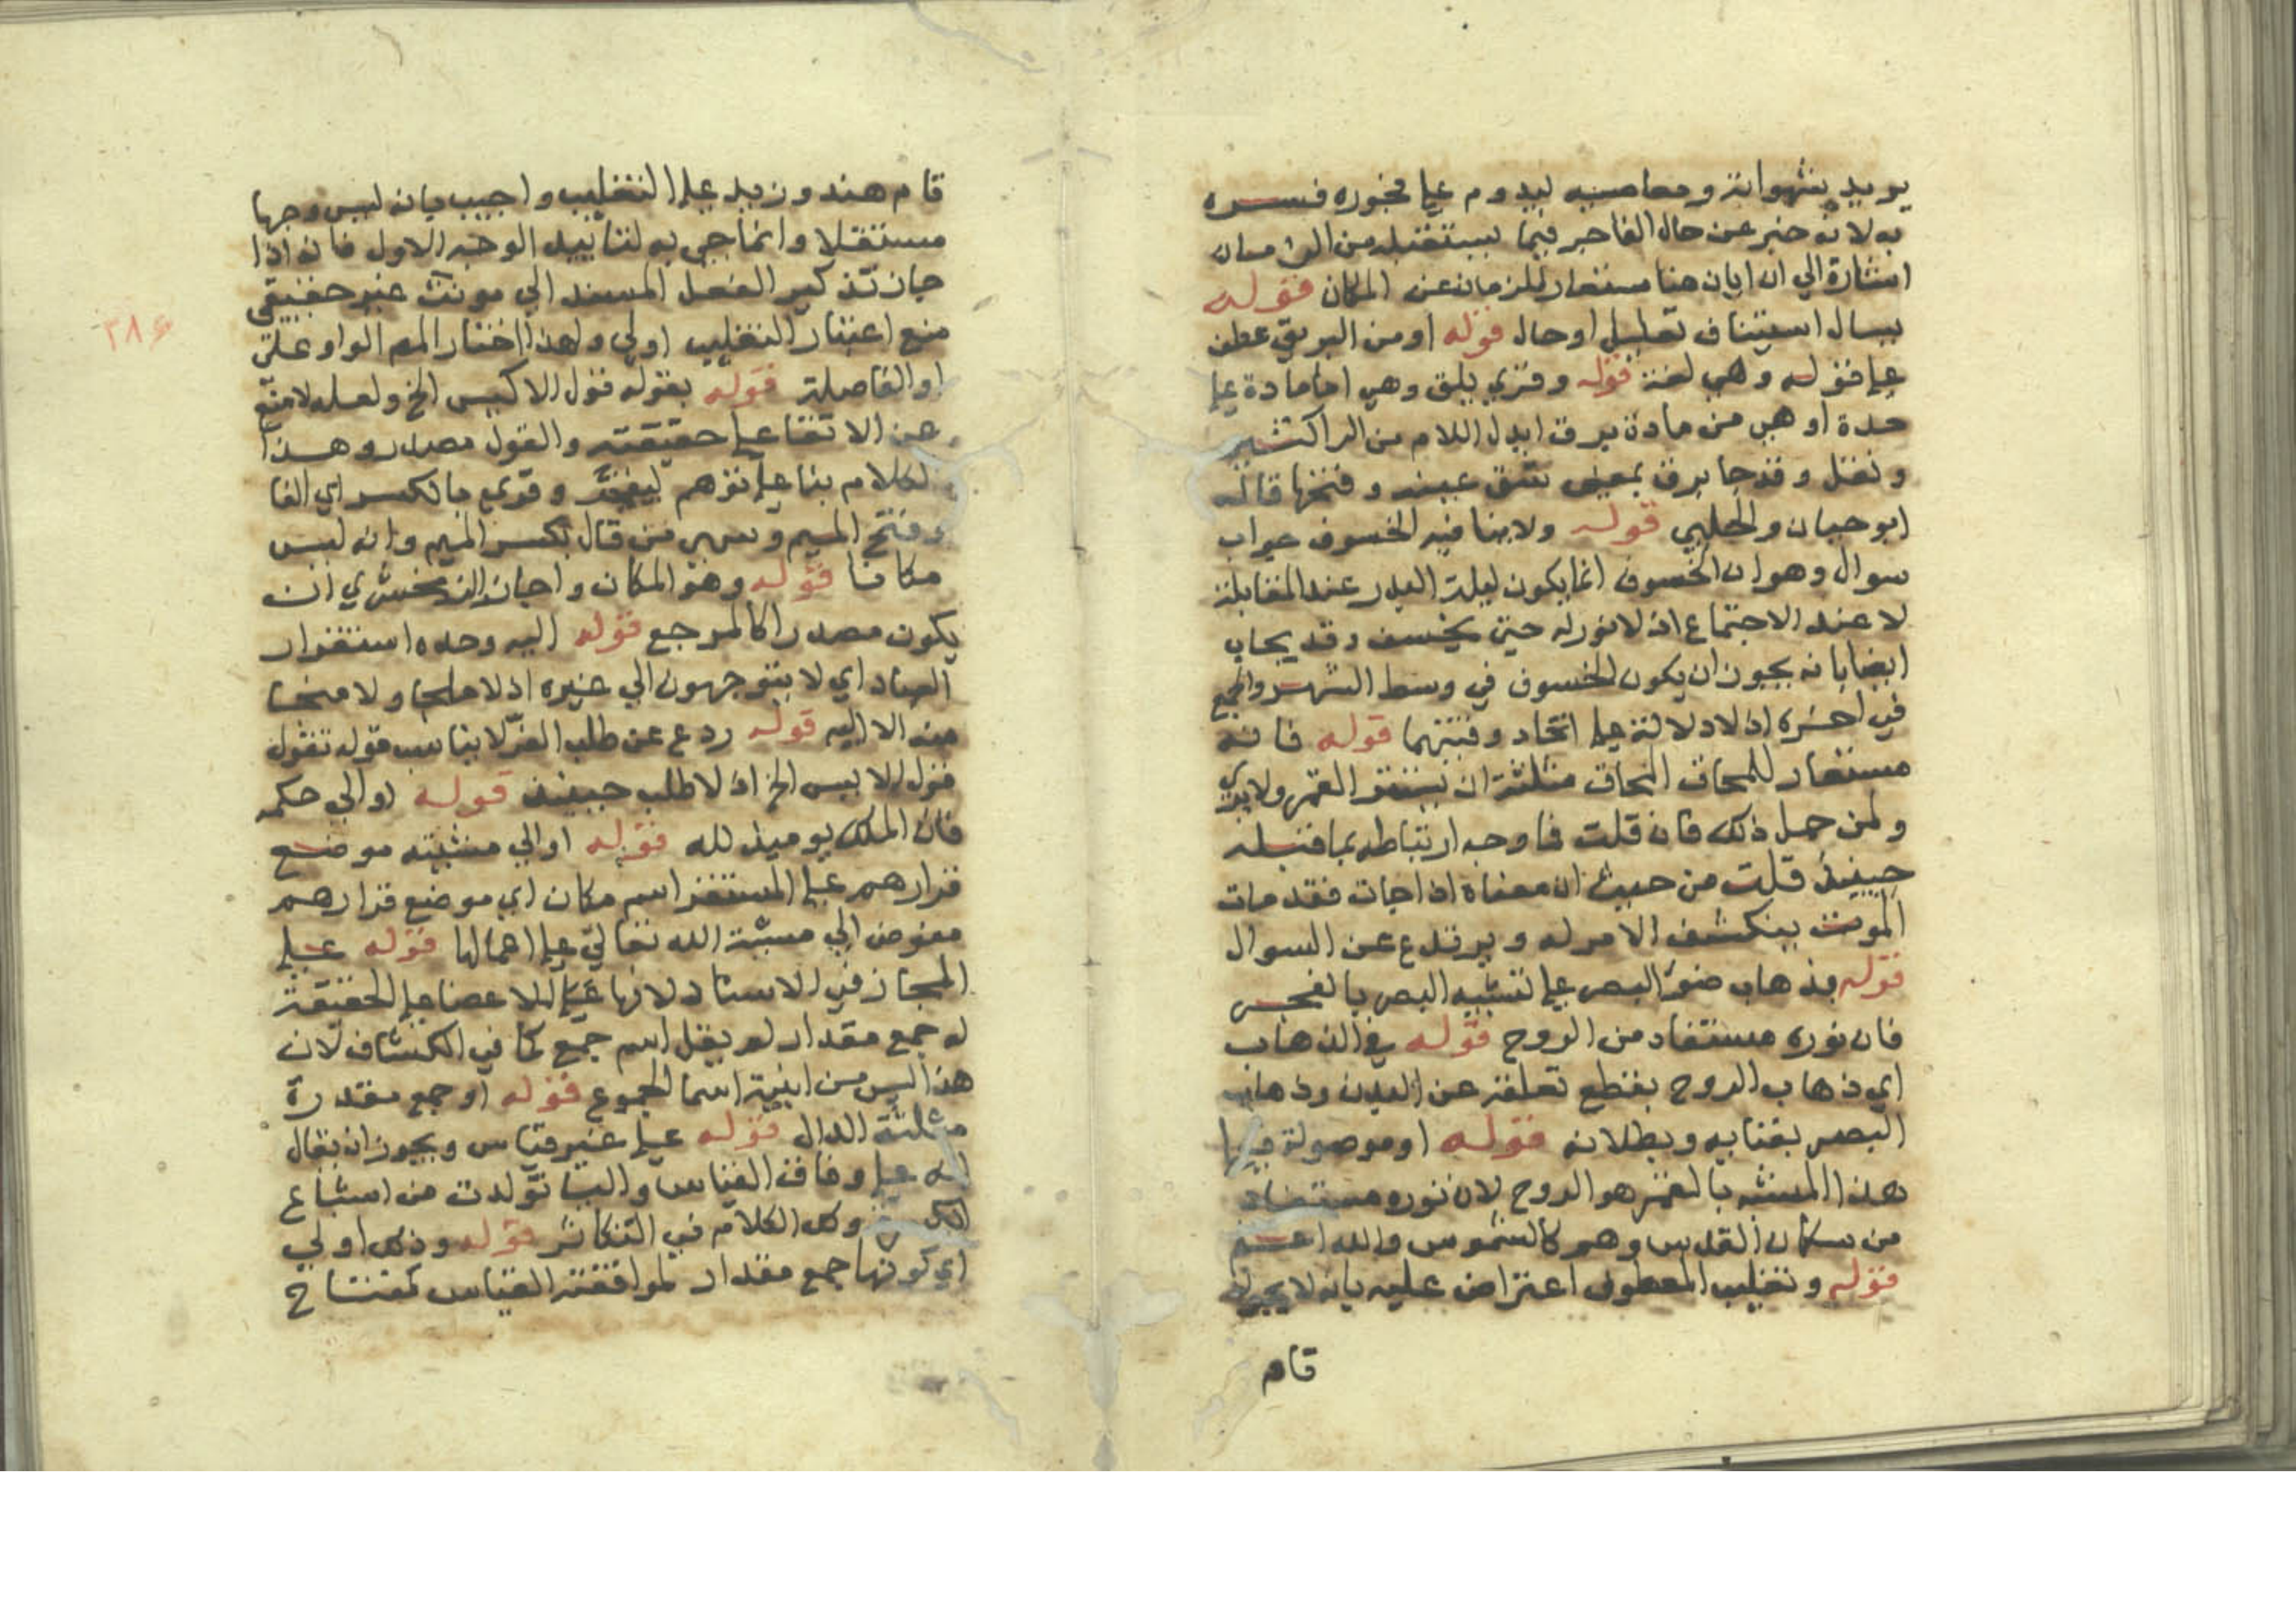 يريد بشهواته ومعاصيه ليدوم على فجوره فسره
به لانه خبر عن حال الفاجر فيما يستقبله من الزمان
اشارة الي ان ايان هنا مستعار للزمان عن المكان قوله
يسال استيناف تعليل او حال قوله او من البريق عطف
على قوله وهي لغة قوله وقري بلق وهي اما مادة على
حدة او هي من مادة برق ابدل اللام من الرا كنثير
ونثل وقد جا برق بمعنى شق عينه وفتحها قاله
ابو حيان والحلبي قوله ولا ينافيه الخسوف جواب
سوال وهو ان الخسوف انما يكون ليلة البدر عند المقابلة
لا عند الاجتماع اذ لا نور له حتى يخسف وقد يجاب
ايضا بانه يجوز ان يكون الخسوف في وسط الشهر والجمع
في اخره اذ لا دلالة على اتحاد وقتيهما قوله فانه
مستعار للمحاق المحاق مثلثة ان يستتر القمر ولا يرى
ولمن حمل ذلك فان قلت فما وجه ارتباطه بما قبله
حينيذ قلت من حيث ان معناه اذا جات فقد مات
الموت ينكشف الامر له ويرتدع عن السوال
قوله بذهاب ضو البصر على تشبيه البصر بالقمر
فان نوره مستفاد من الروح قوله في الذهاب
اي ذهاب الروح بقطع تعلقه عن البدن وذهاب
البصر بفنايه وبطلانه قوله او موصولة فيها
هذا المشبه بالقمر هو الروح لان نوره مستفاد
من سكان القدس وهم كالشموس والله اعلم
قوله وتغليب المعطوف اعتراض عليه بانه لا يجوز
قام
قام هند وزيد على التغليب واجيب بانه ليس وجها
مستقلا وانما جي به لتاييد الوجه الاول فانه اذا
جاز تذكير الفعل المسند الي مونث غير حقيقي
منع اعتبار التغليب اولي ولهذا اختار المص الواو على
او الفاصلة قوله بقوله قول الايس الخ ولعله لا منع
عن الاتقا على حقيقته والقول مصدر وهذا
الكلام بنا على توهم وقري بالكسر اي الفا
وفتح الميم وسهى من قال بكسر الميم وانه ليس
مكانا قوله وهو المكان واجاز الزمخشري ان
يكون مصدرا كالمرجع قوله اليه وحده استقرار
العباد اي لا يتوجهون الي غيره اذ لا ملجا ولا منجا
منه الا اليه قوله ردع عن طلب المفر لا يناسب قوله تقول
قول الايس الخ اذ لا طلب حينيذ قوله او الي حكمه
فان الملك يوميذ لله قوله او الي مشيته موضع
قرارهم على المستقر اسم مكان اي موضع قرارهم
مفوض الي مشية الله تعالي على اعمالها قوله على
المجاز في الاسناد لانها للاعضا على الحقيقة
لو جمع مقدار لم يقل اسم جمع كما في الكشاف لان
هذا ليس من ابنية اسما الجموع قوله او جمع مقدرة
مثلثة الدال قوله على غير قياس ويجوز ان يقال
انه على وفاق القياس واليا تولدت من اشباع
وكل الكلام في التكاثر قوله وذلك اولي
اي كونها جمع مقدار لموافقته القياس كمفتاح
٣٨٤